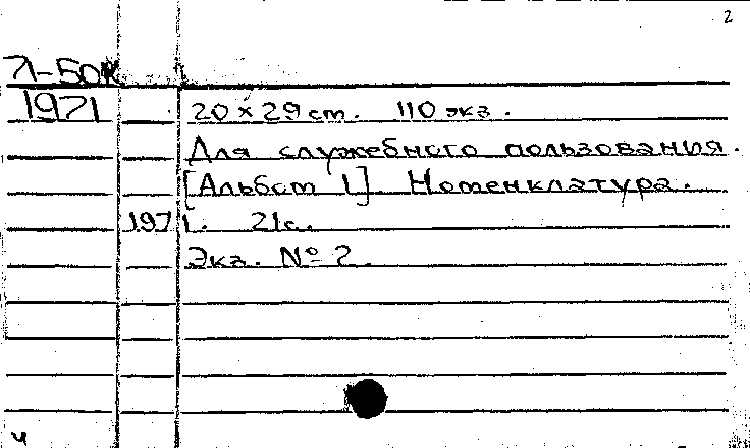 2
Л-50к
1971 20×29 cm. 110 экз.
Для служебного пользования.
[Альбом 1]. Номенклатура.
1971. 21с.
Экз. № 2.
ч